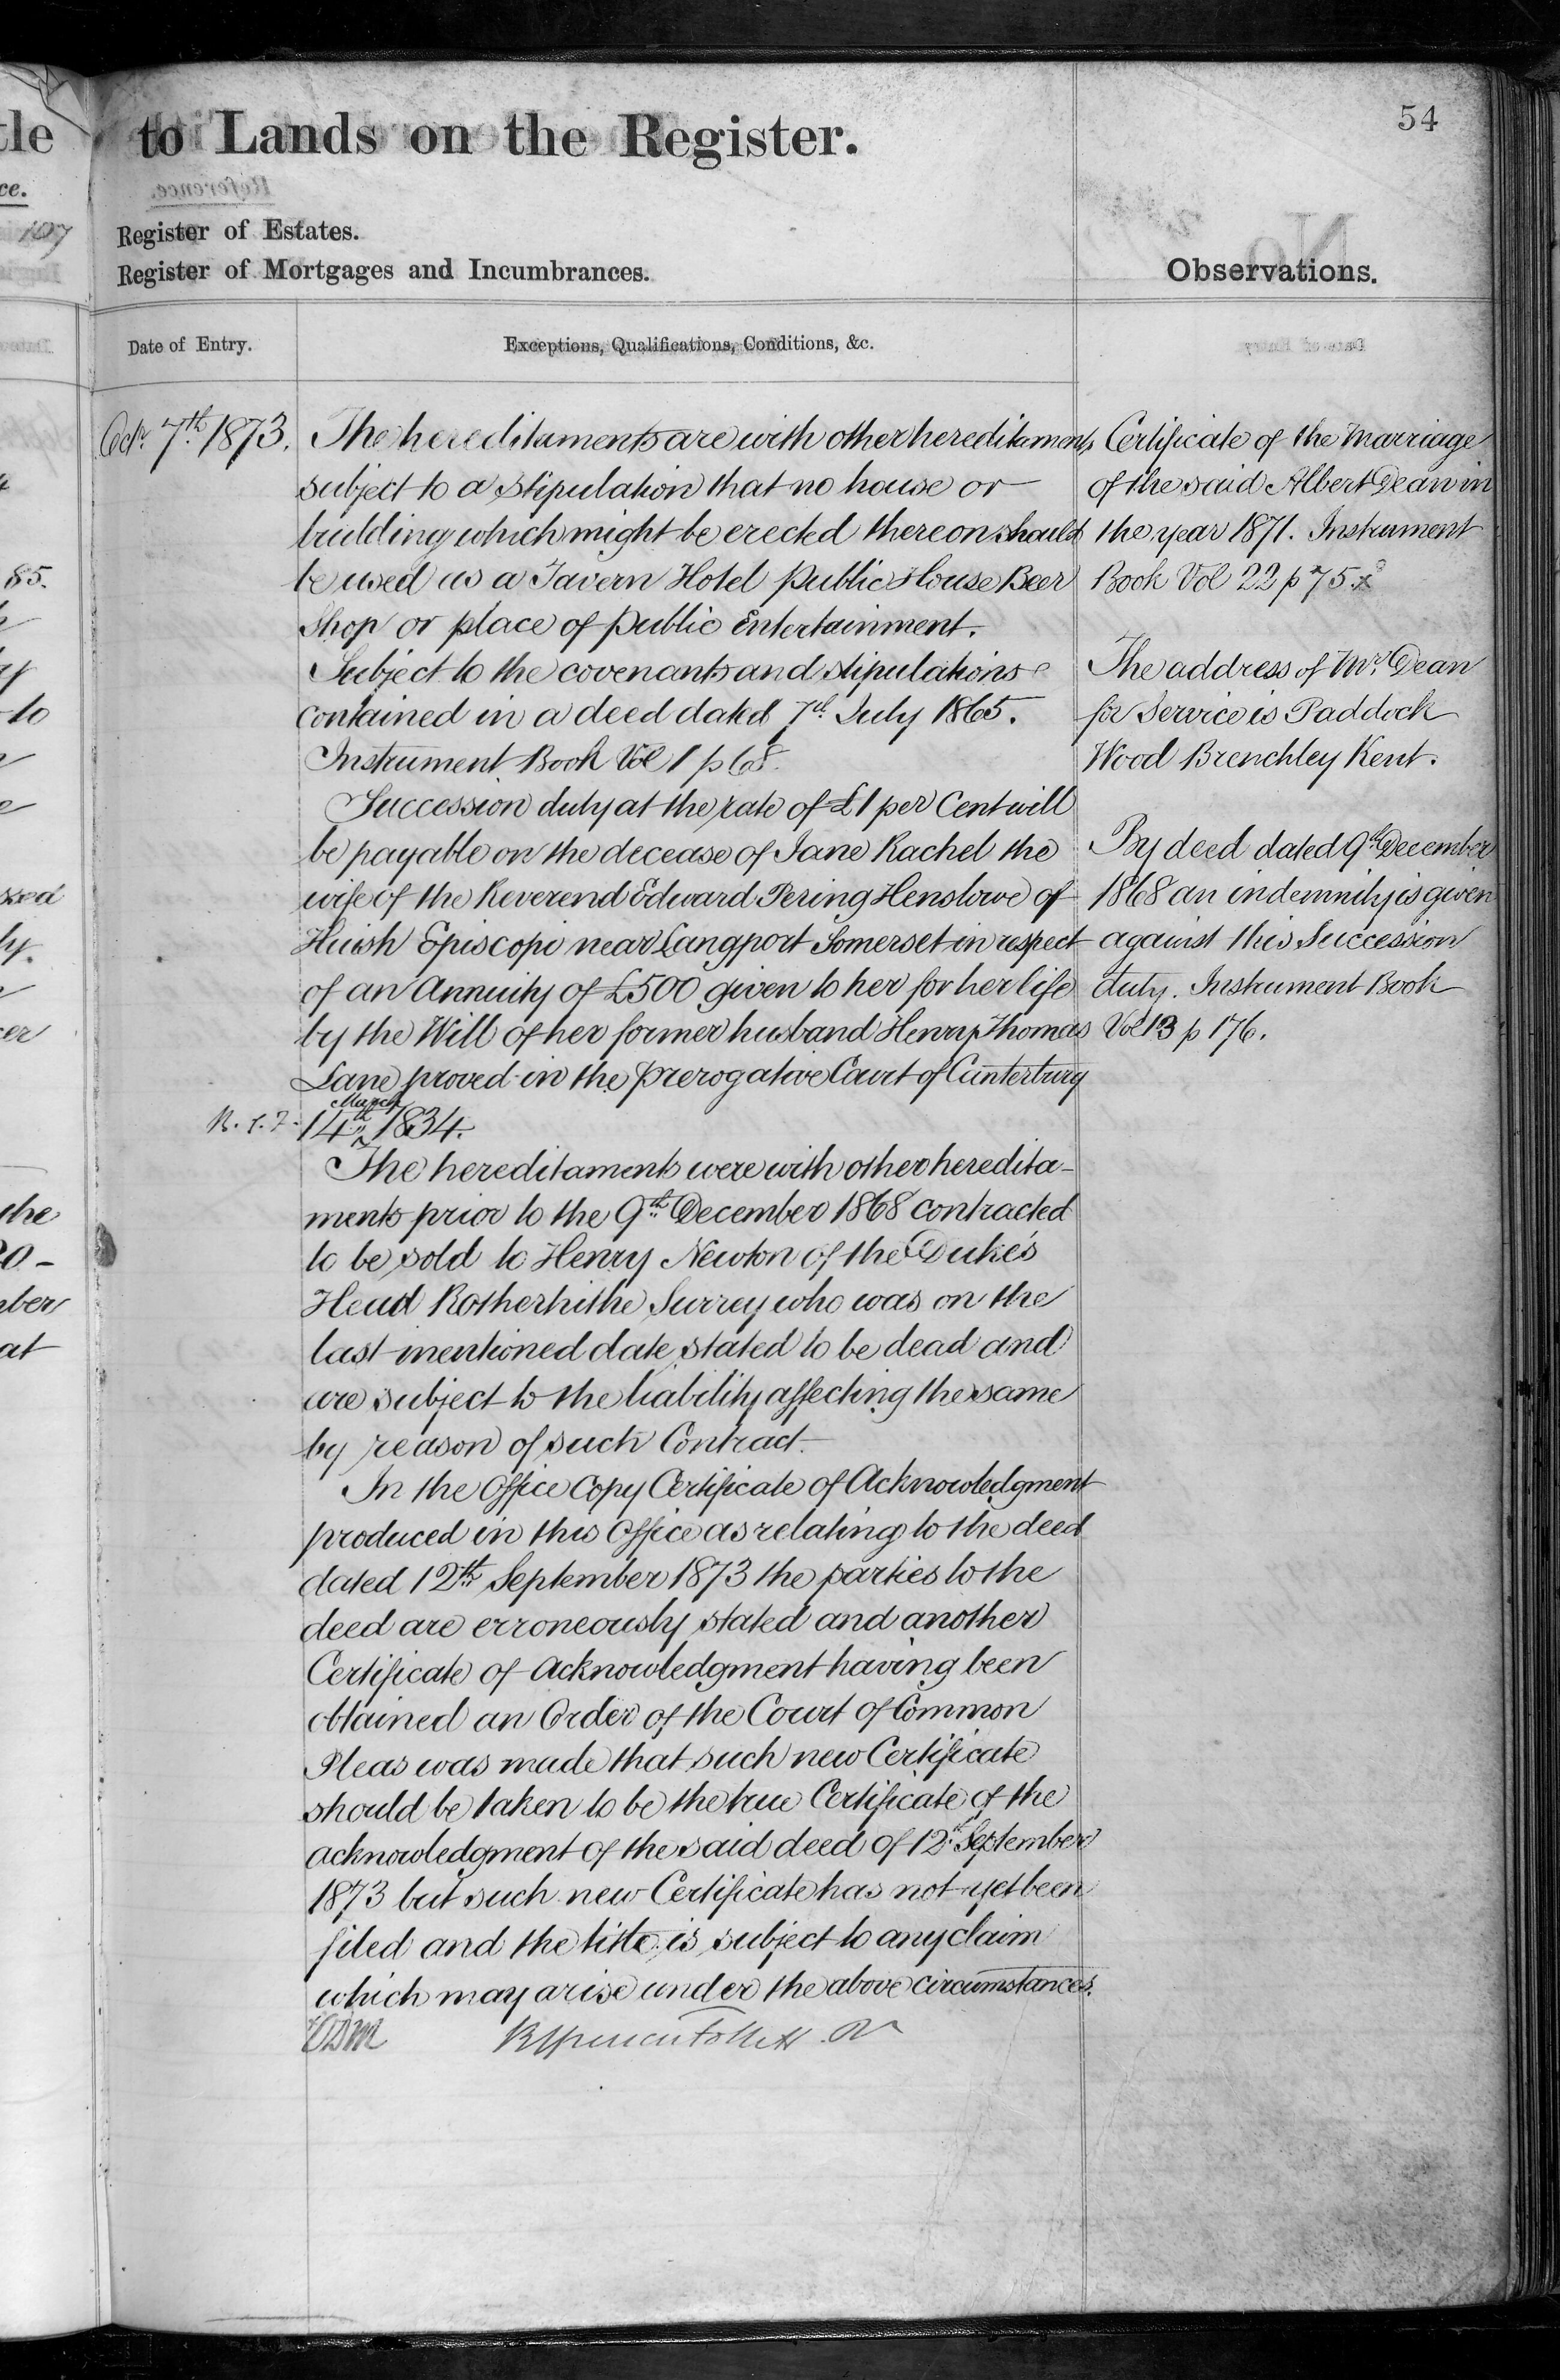 54
to Lands on the Register.
Register of Estates.
Register of Mortgages and Incumbrances.
Observations.
Date of Entry.
Exceptions, Qualifications, Conditions, &c.
Octr 7th 1873.
The hereditaments are with other hereditaments
subject to a stipulation that no house or
building which might be erected thereon should
be used as a Tavern Hotel Public House Beer
Shop or place of public Entertainment.
Subject to the covenants and stipulations
contained in a deed dated 7th July 1865.
Instrument Book Vol 1 p 68.
Succession duty at the rate of £1 per Cent will
be payable on the decease of Jane Rachel the
wife of the Reverend Edward Pering Henslowe of
Huish Episcopi near Langport Somerset in respect
of an Annuity of £500 given to her for her life
by the Will of her former husband Henry Thomas
Lane proved in the Prerogative Court of Canterbury
March
14th 1834.
The hereditaments were with other heredita-
ments prior to the 9th December 1868 contracted
to be sold to Henry Newton of the Duke's
Head Rotherhithe Surrey who was on the
last mentioned date stated to be dead and
are subject to the liability affecting the same
by reason of such Contract.
In the Office Copy Certificate of Acknowledgment
produced in this Office as relating to the deed
dated 12th September 1873 the parties to the
deed are erroneously stated and another
Certificate of Acknowledgment having been
obtained an Order of the Court of Common
Pleas was made that such new Certificate
should be taken to be the true Certificate of the
acknowledgment of the said deed of 12th September
1873 but such new Certificate has not yet been
filed and the title is subject to any claim
which may arise under the above circumstances.
Certificate of the Marriage
of the said Albert Dean in
the year 1871. Instrument
Book Vol 22 p 75
The address of Mr. Dean
for Service is Paddock
Wood Brenchley Kent.
By deed dated 9th December
1868 an indemnity is given
against this Succession
duty. Instrument Book
Vol 13 p 176.